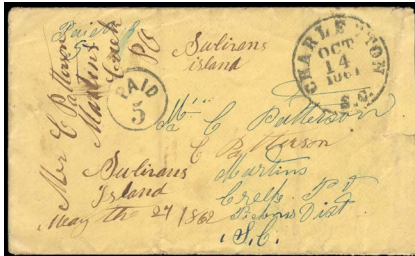 Paid 5
Mr C Patterson
Martins
Creek
PO
Sulivans
island
CHARLESTON
OCT
14
1861
S.C.
PAID
5
Mr C Patterson
C Patterson
Martins
Creek PO
Pickens Dist
S.C.
Sulivans
Island
May the 27 1862